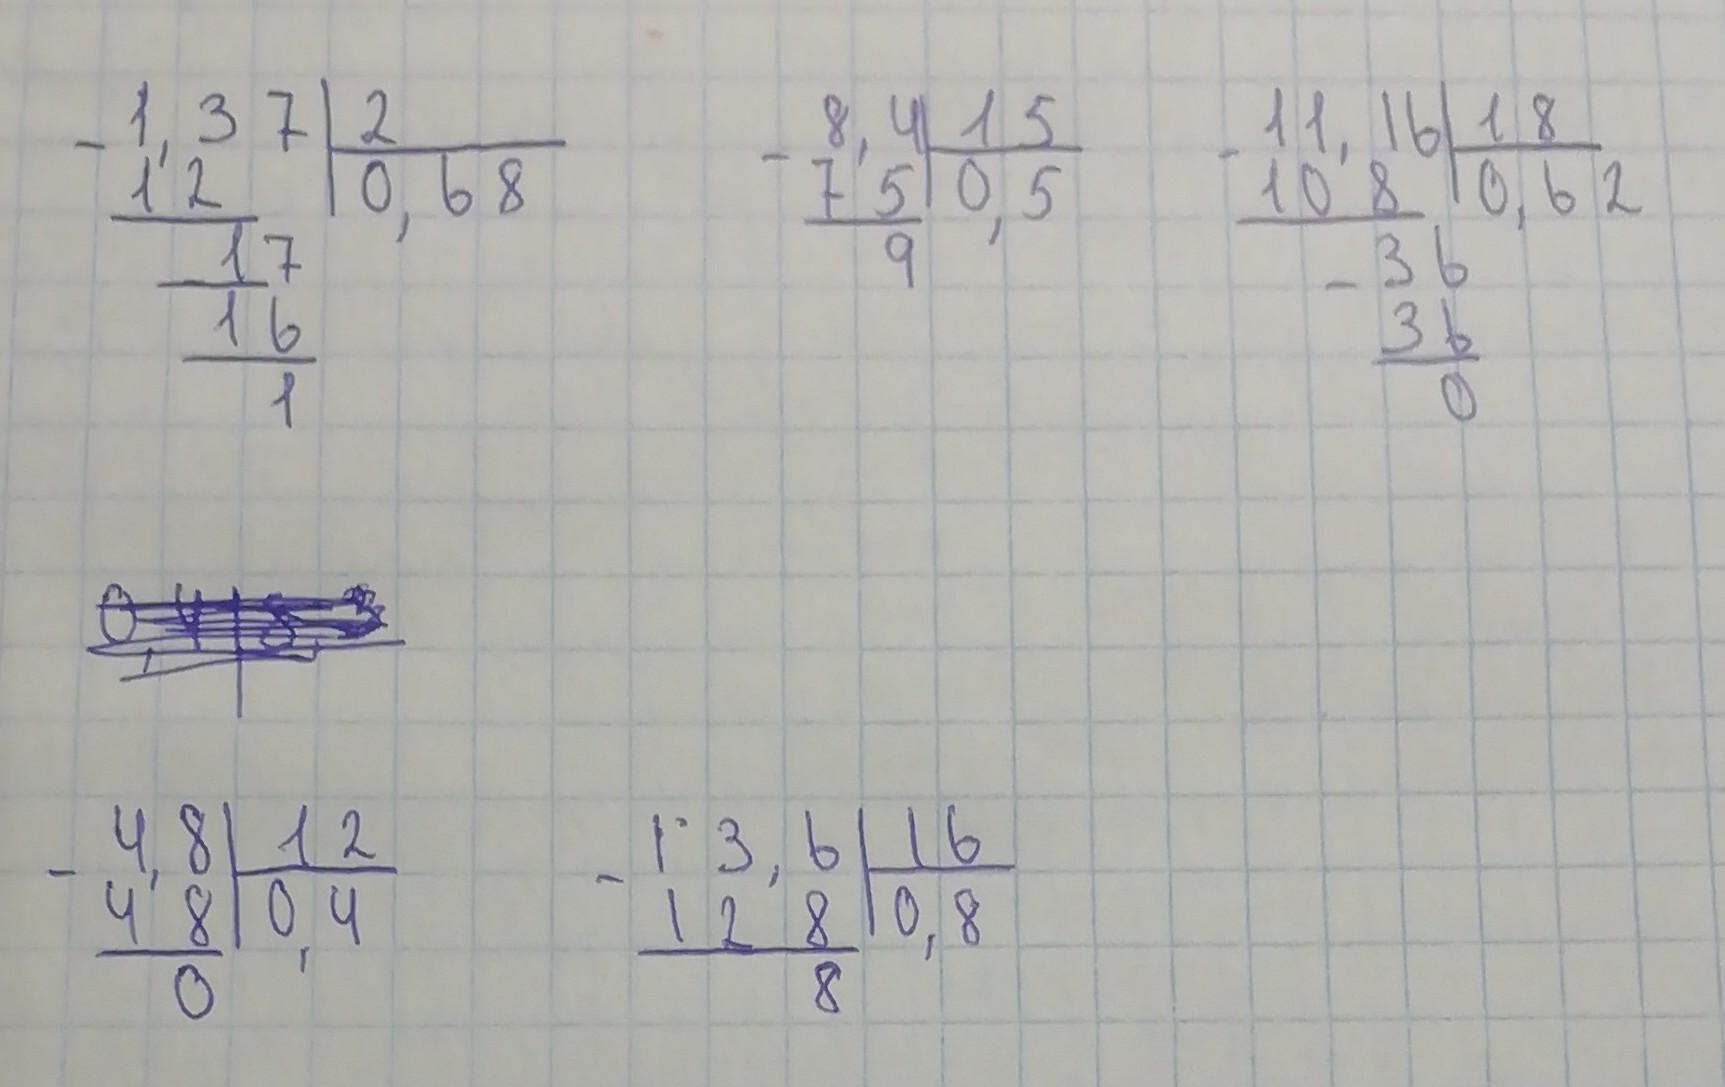 1,37 2 8,4 15 11,16 18
12 0,68 75 0,5 108 0,62
17 9 36
16 36
1 0
4,8 12 13,6 16
48 0,4 128 0,8
0 8